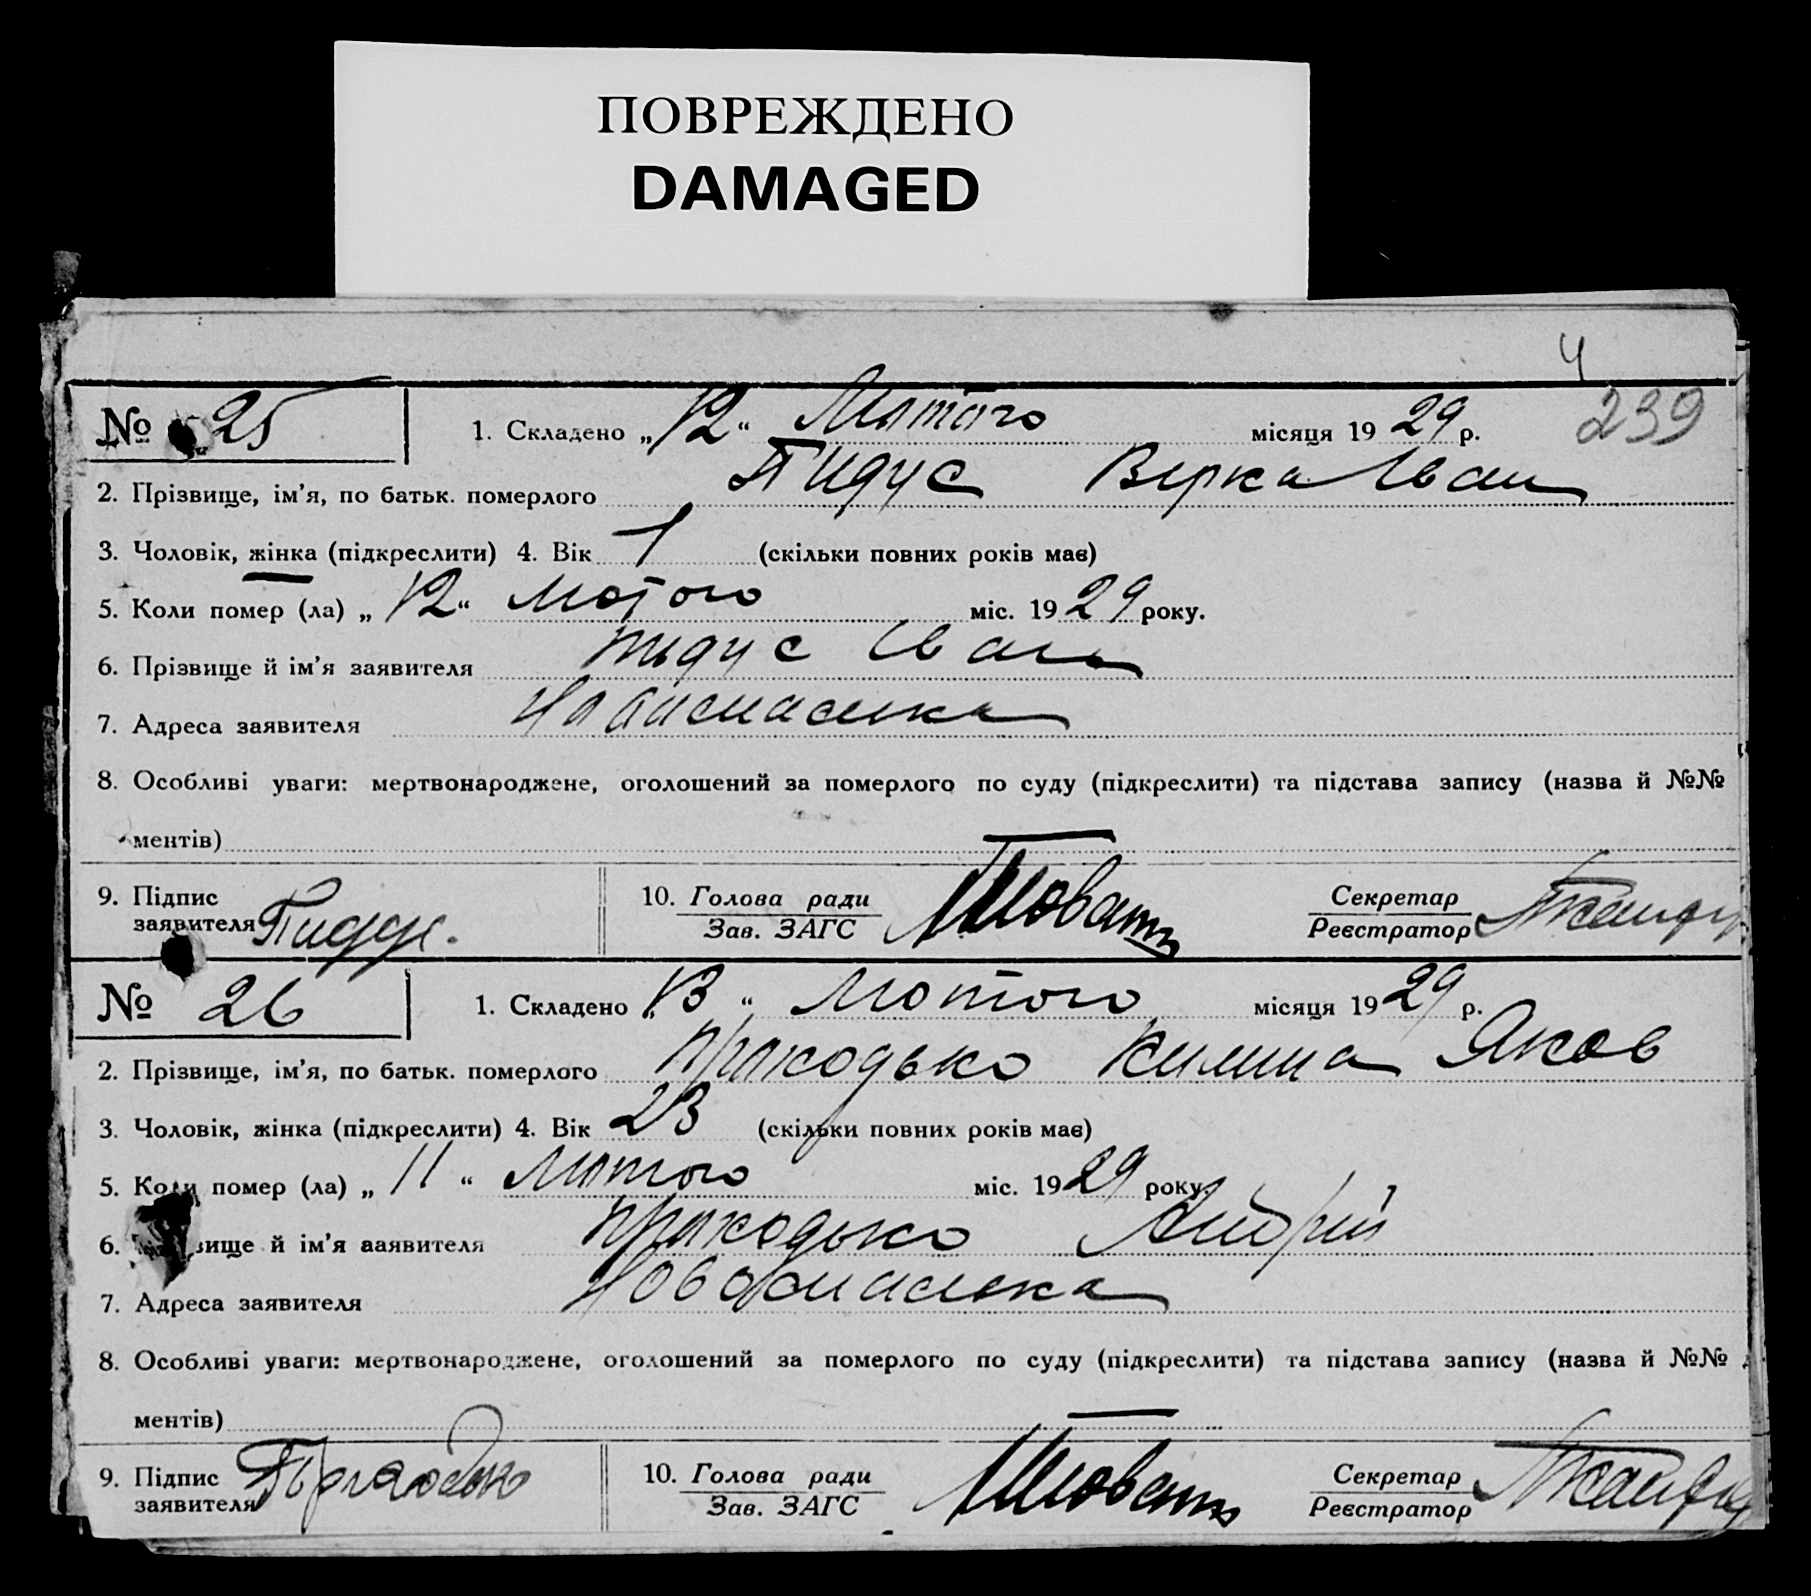 ПОВРЕЖДЕНО
DAMAGED
4
239
№ 25 1. Складено „12“ Лютого місяця 1929 р.
2. Прізвище, ім’я, по батьк. померлого Пидус Вірка Іван
3. Чоловік, жінка (підкреслити) 4. Вік 1 (скільки повних років має)
5. Коли помер (ла) „12“ Лютого міс. 1929 року.
6. Прізвище й ім’я заявителя Пидус Іван
7. Адреса заявителя
8. Особливі уваги: мертвонароджене, оголошений за померлого по суду (підкреслити) та підстава запису (назва й №№
ментів)
9. Підпис
заявителя
10. Голова ради
Зав. ЗАГС
Секретар
Реєстратор
№ 26 1. Складено „13“ Лютого місяця 1929 р.
2. Прізвище, ім’я, по батьк. померлого Приходько Килина Яков
3. Чоловік, жінка (підкреслити) 4. Вік 23 (скільки повних років має)
5. Коли помер (ла) „11“ Лютого міс. 1929 року.
6. вище й ім’я заявителя Приходько Андрій
7. Адреса заявителя
8. Особливі уваги: мертвонароджене, оголошений за померлого по суду (підкреслити) та підстава запису (назва й №№
ментів)
9. Підпис
заявителя
10. Голова ради
Зав. ЗАГС
Секретар
Реєстратор